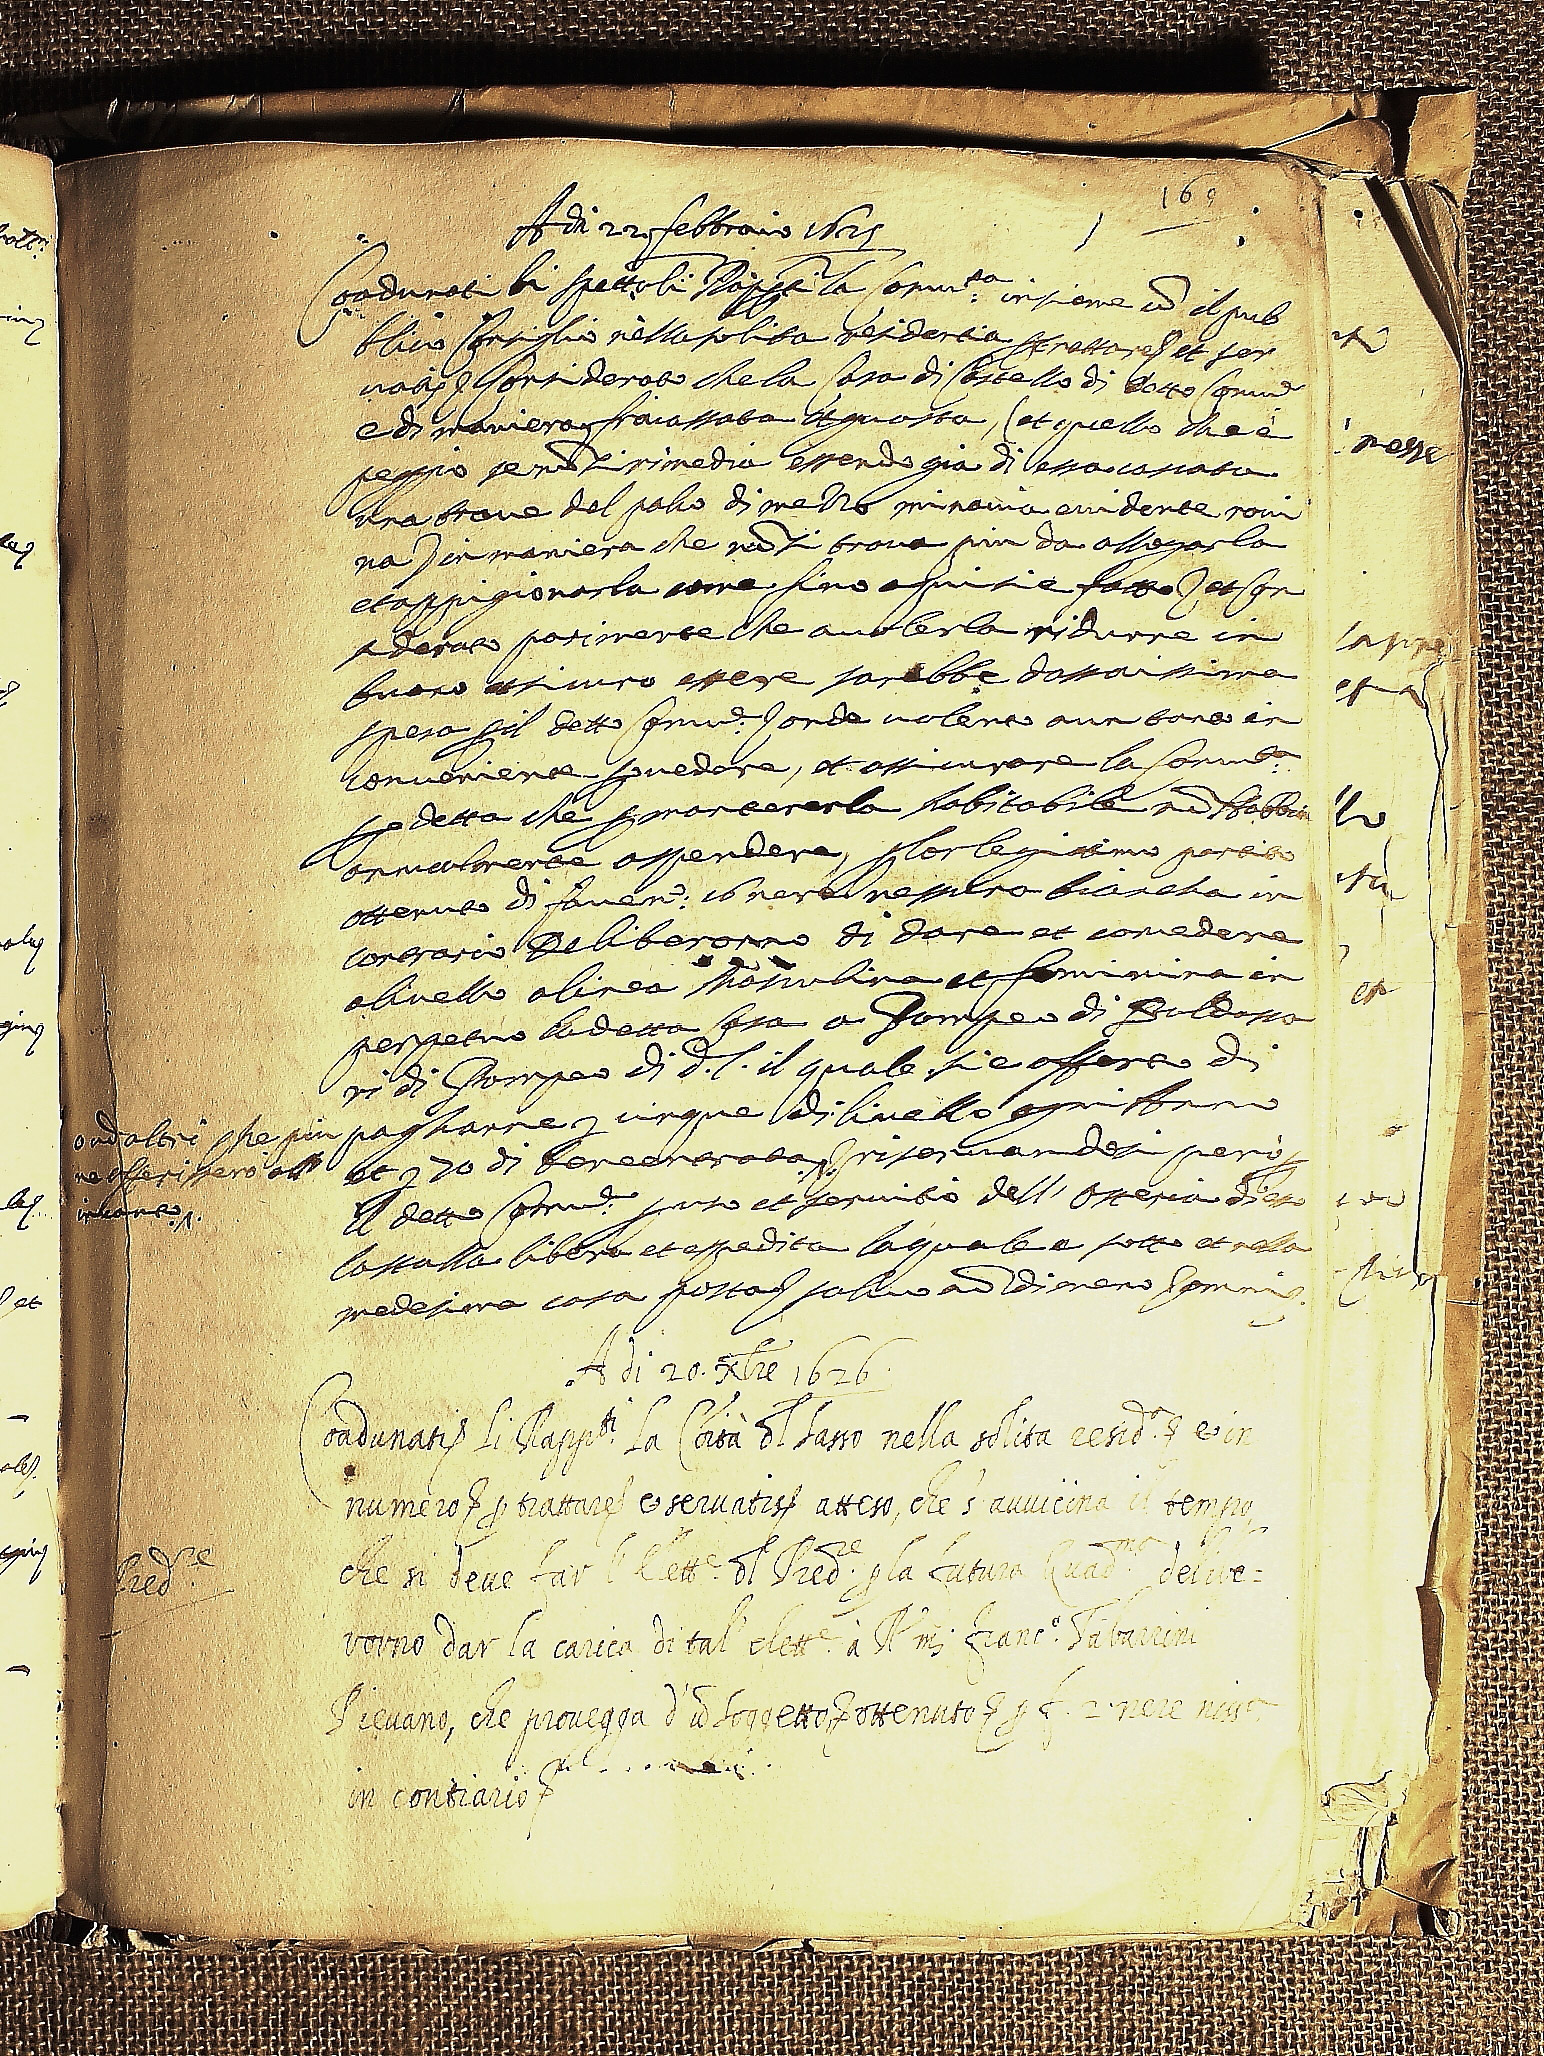 169
A di 22 febbraio 1625
Coadunati li spettoli Rappti la Comuta insieme co il pub
blico Consiglio nella solita residentia p trattare et ser
vatis Considerato che la Casa di Castello di detto Comune
e di maniera fracassata et guasta, (et quello che è
peggio se non si rimedia essendo gia di essa cascata
una trave del palco di mezzo minaccia evidente roui
na) in maniera che no si trova piu da allogarla
et appigionarla come sino a qui si è fatto et Con
siderato parimente che a volerla ridurre in
buono et sicuro essere sarebbe dassaissima
spesa p il detto Comune onde volendo a un tanto in
conveniente provedere, et assicurare la Comuta
detta che p mantenerla habitabile no habbia
annualmente a spendere, p lor legittimo partito
ottenuto di faven: 16 nere nessuna biancha in
contrario Deliberorno di dare et concedere
a livello a linea Masculina et feminina in
perpetuo la detta Casa a Pompeo di Baldassa
ri di Pompeo di d. l. il quale si e offerto di
pagharne cinque di livello ogni Anno
et 70 di benentrata riservandosi però
od altri che piu
ne offerissero all
incanto
Il detto Comune p uso et servitio dell' Osteria di esso
la stalla libera et espedita la quale e sotto et nella
medesima casa posta salvo no dimeno
A di 20. Xbre 1626
Coadunatis Li Rappti La Coità dl Sasso nella solita resida e in
numero p trattare e servatis atteso, che s'avvicina il tempo,
che si deve far l'Elette dl Predre p la futura Quadma delibe=
Predre
rorno dar la carica di tal' elette à Rmj Franco Tabarrini
Pievano, che provegga d'id soggetto, ottenuto p f. 2 nere niss
in contrario